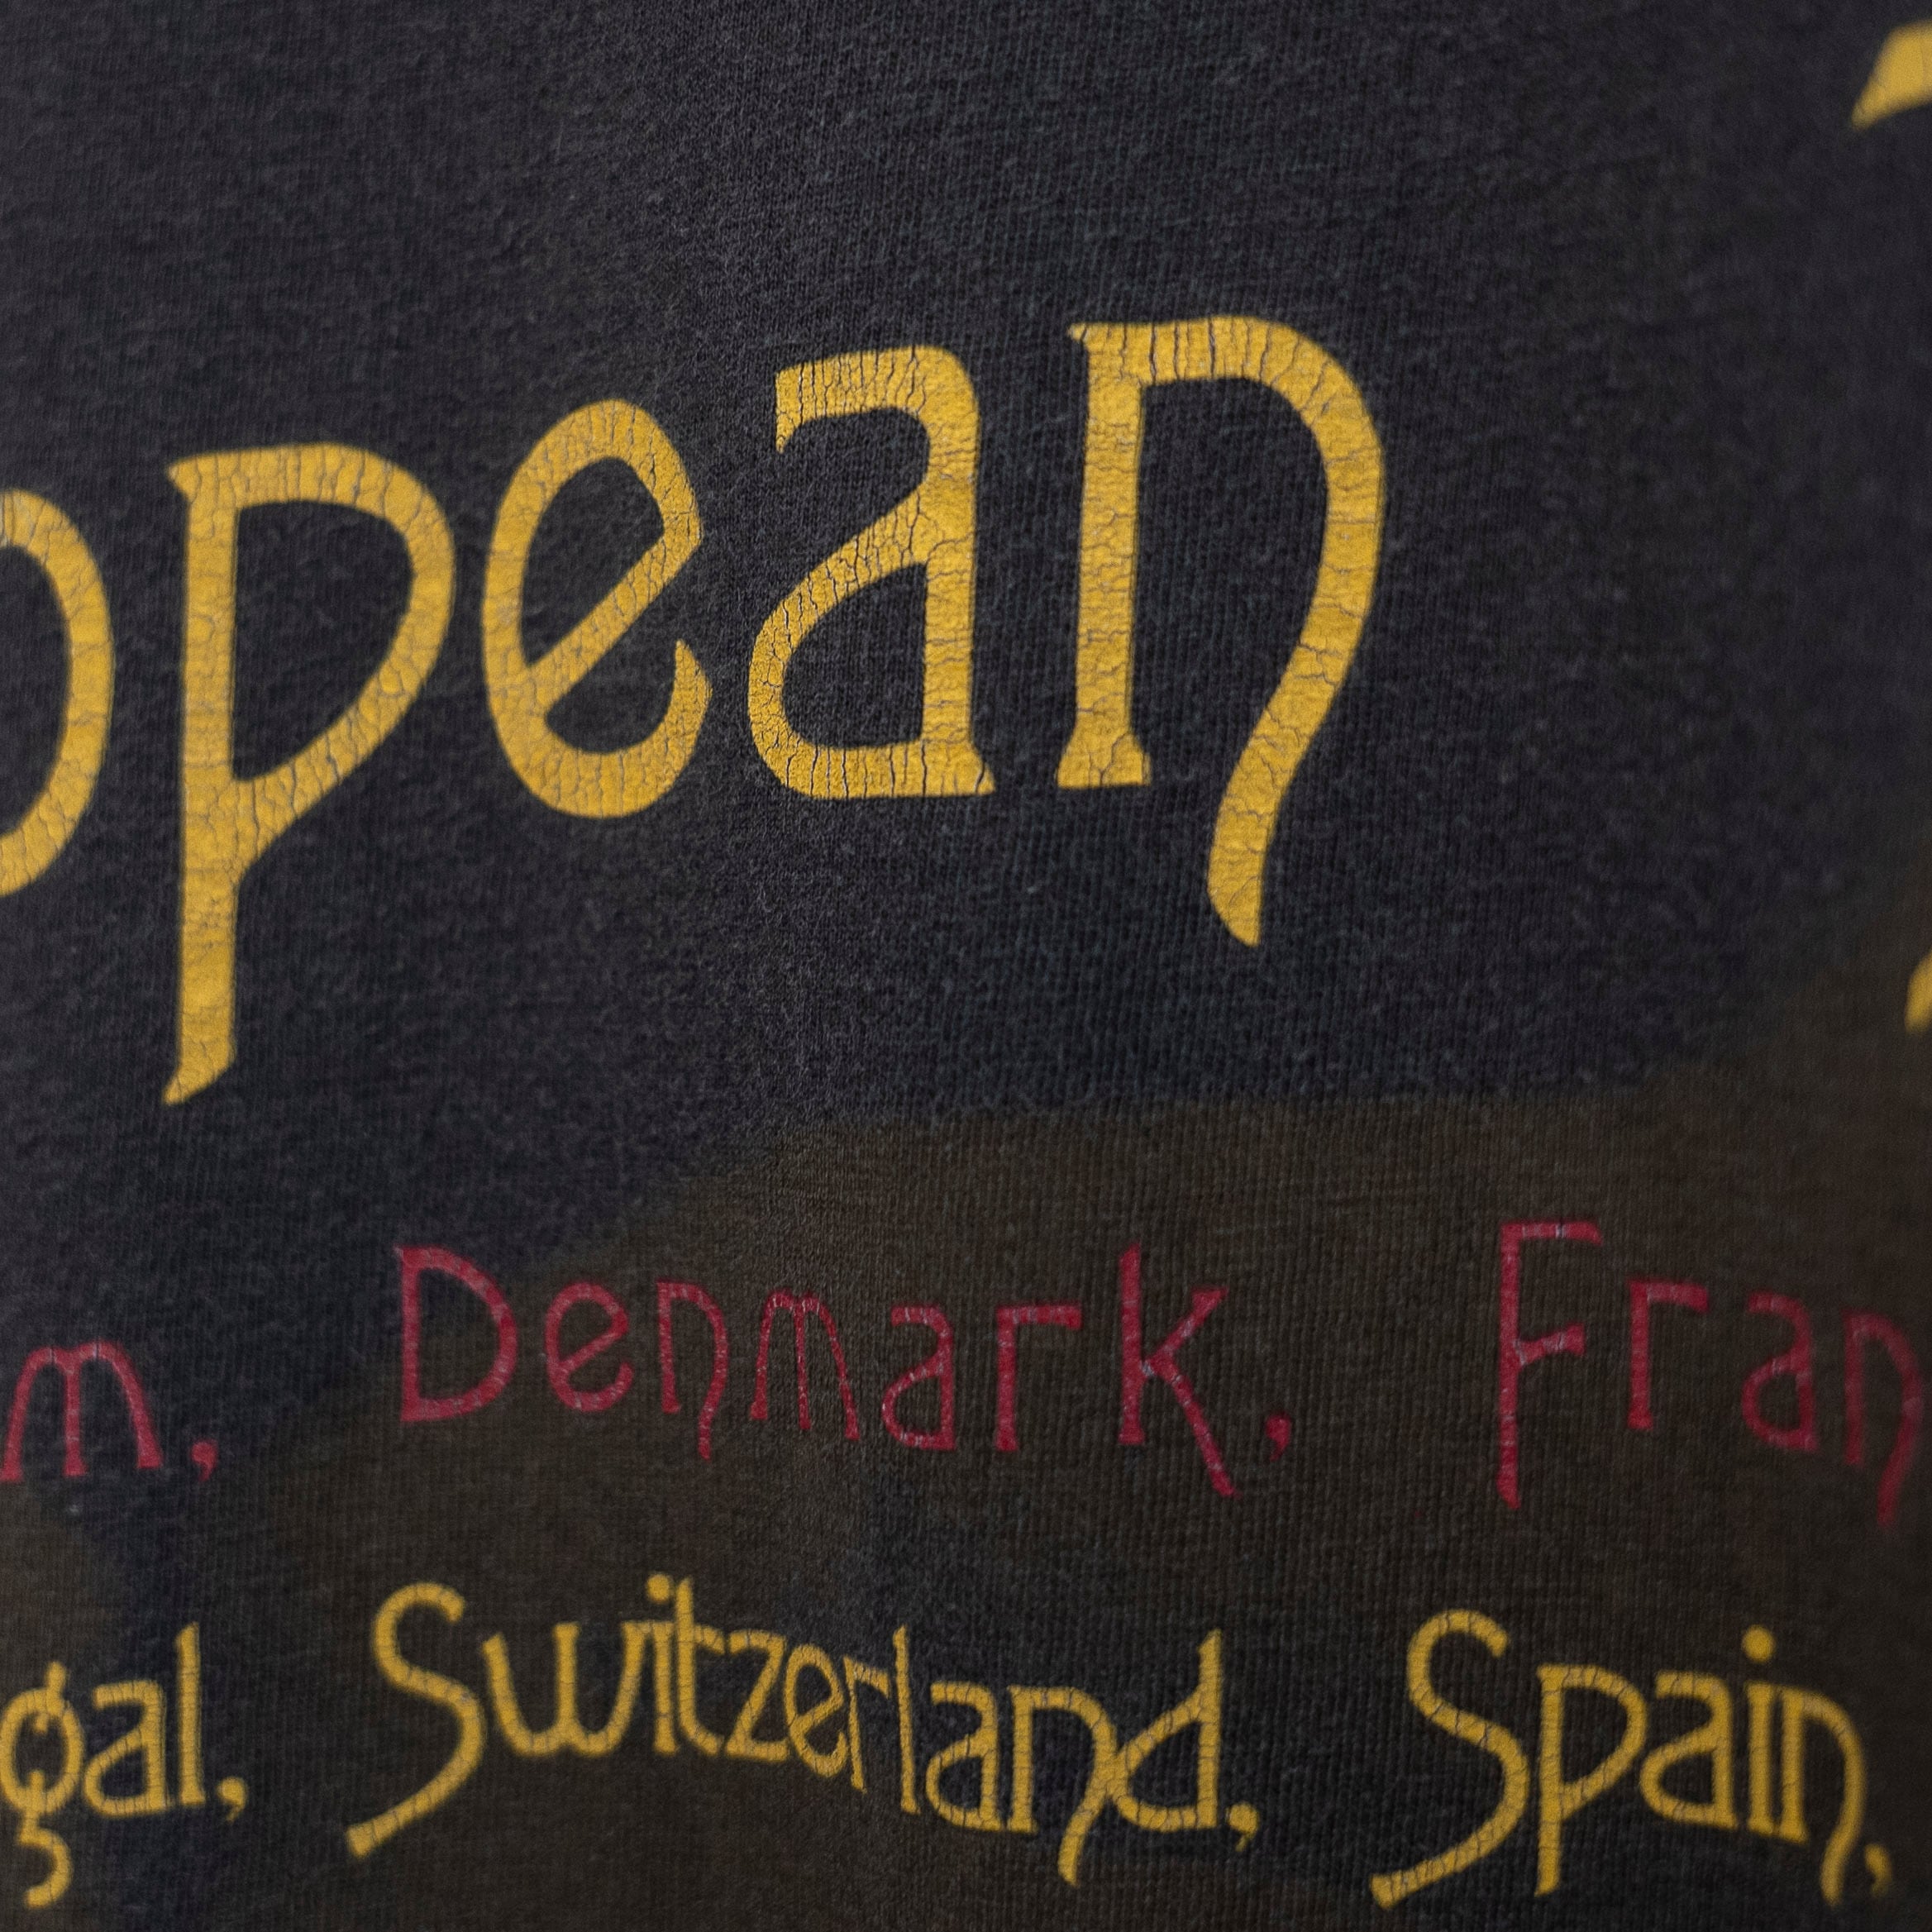 opean
m, Denmark, Fran
gal, Switzerland, Spain,